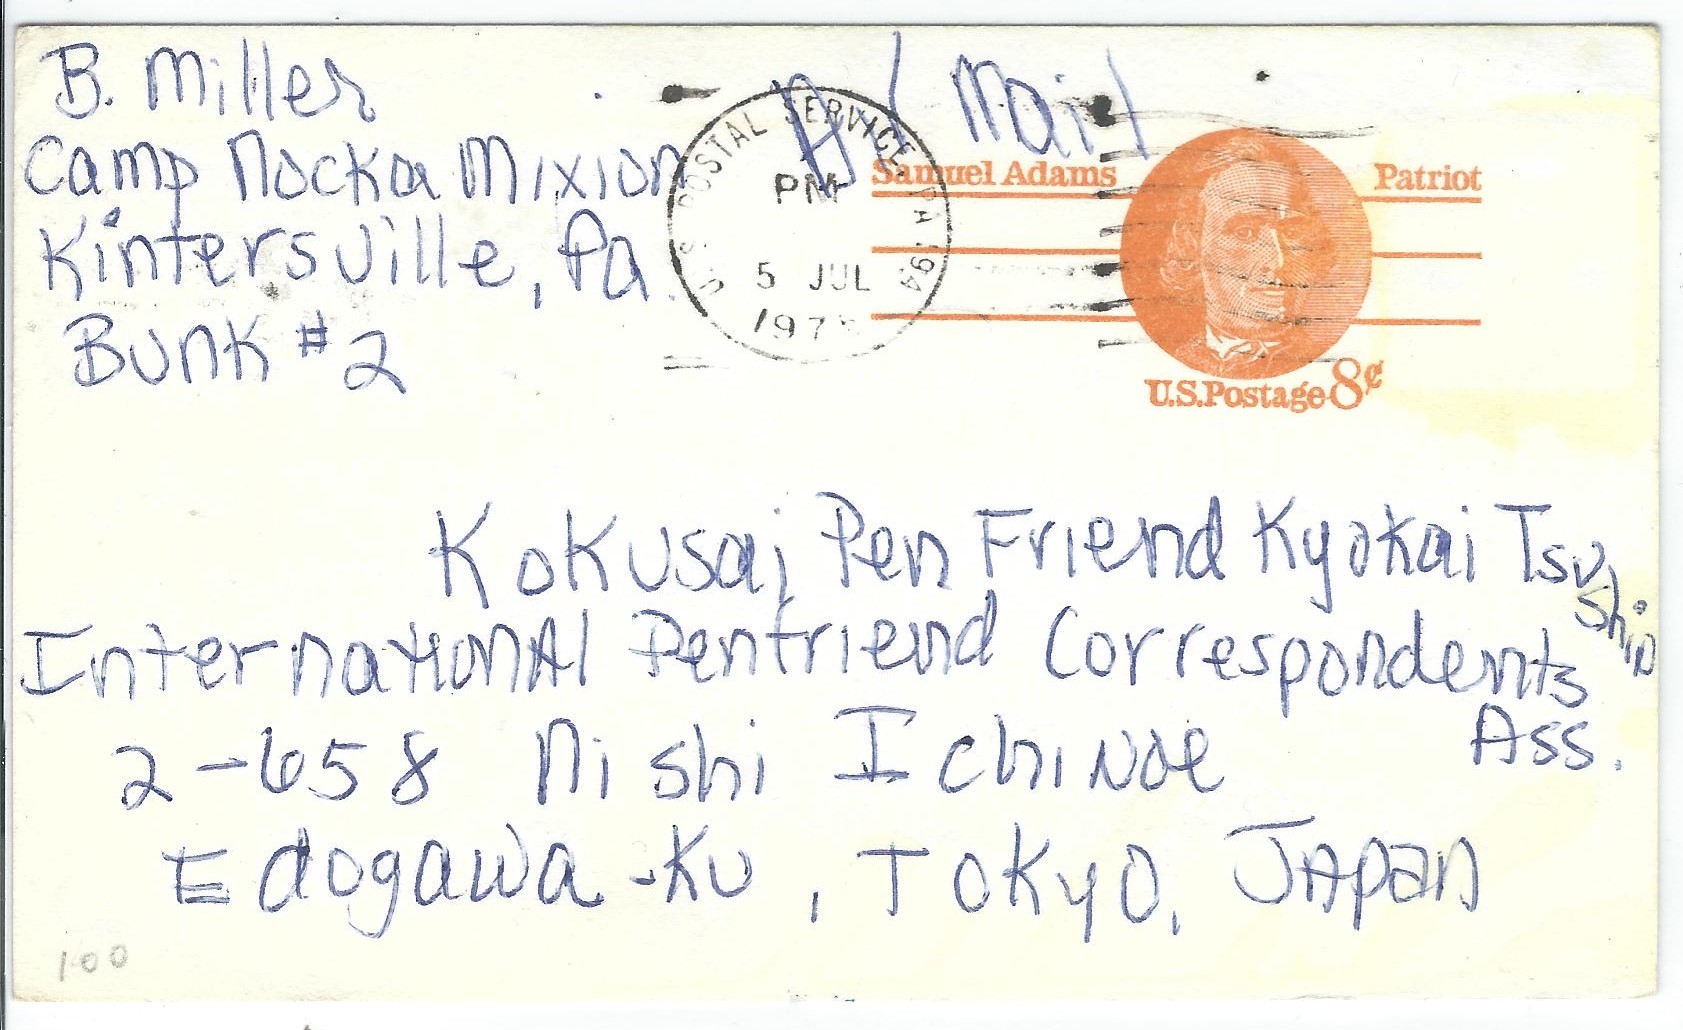 B. Miller
Camp Nocka Mixion
Kintersville, Pa.
Bunk #2
Mail
U.S. POSTAL SERVICE, PA 194
PM
5 JUL
197
Samuel Adams Patriot
U.S. Postage 8¢
Kokusai Pen Friend Kyokai Tsu
shin
International Penfriend Correspondents
Ass.
2-658 Nishi Ichinoe
Edogawa-Ku, Tokyo, Japan
100